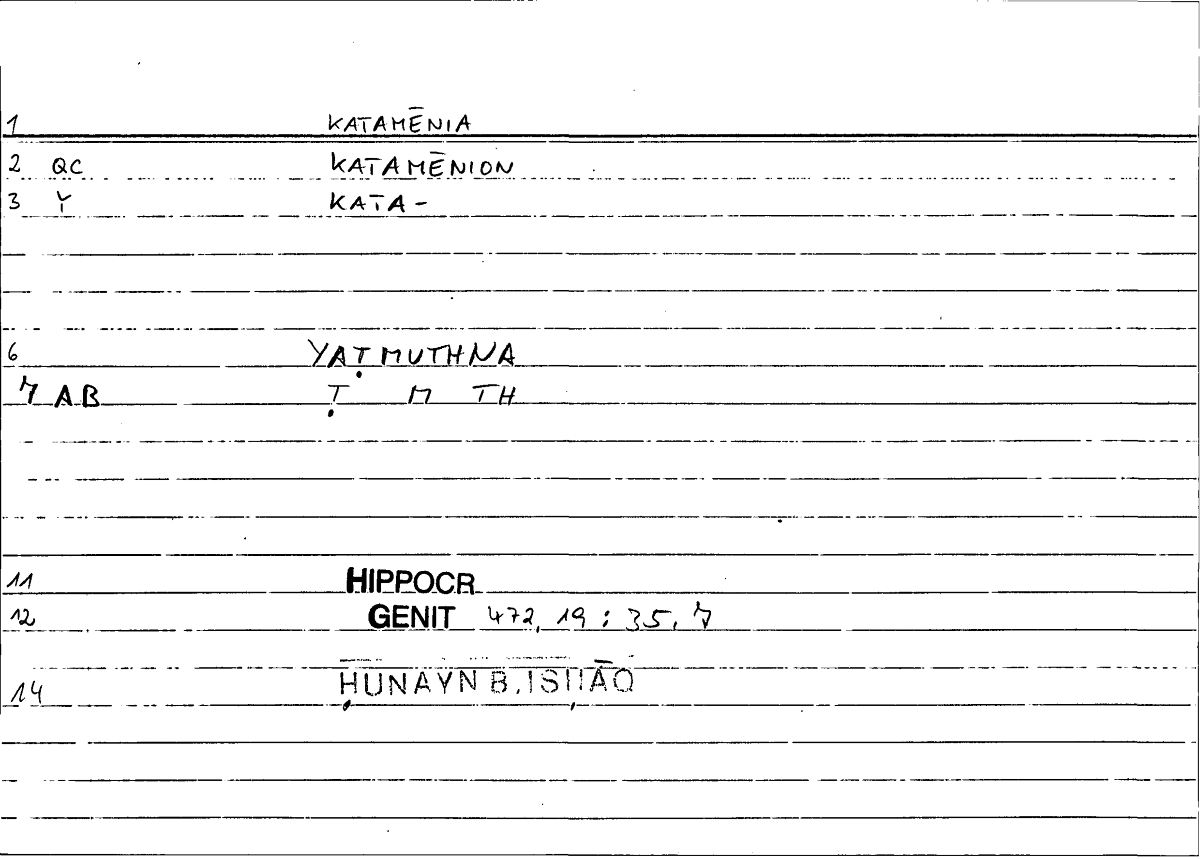 1 KATAMĒNIA
2 QC KATAMĒNION
3 Y KATA-
6 YAṬMUTHNA
7 AB Ṭ M TH
11 HIPPOCR
12 GENIT 472, 19 : 35, 7
14 ḤUNAYN B. ISḤĀQ